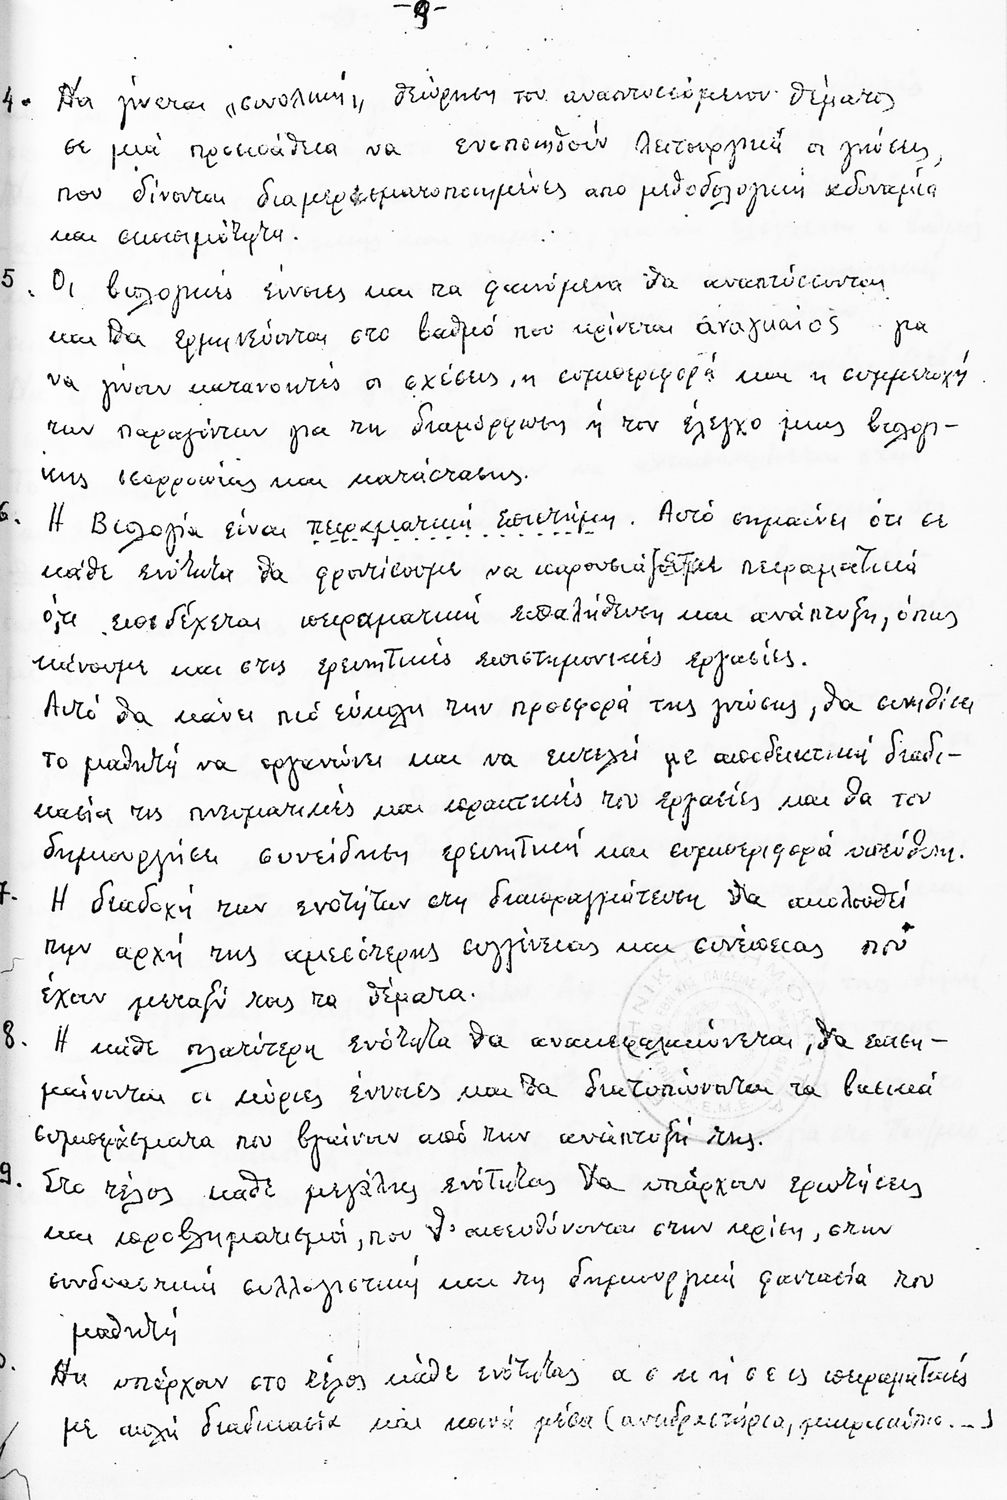 -9-
4. Να γίνεται "συνολική" θεώρηση του αναπτυσσόμενου θέματος
σε μιά προσπάθεια να ενοποιηθούν λειτουργικά οι γνώσεις,
που δίνονται διαμερισματοποιημένες απο μεθοδολογική αδυναμία
και σκοπιμότητα.
5. Οι βιολογικές έννοιες και τα φαινόμενα θα αναπτύσσονται
και θα ερμηνεύονται στο βαθμό που κρίνεται αναγκαίος για
να γίνουν κατανοητές οι σχέσεις, η συμπεριφορά και η συμμετοχή
των παραγόντων για τη διαμόρφωση ή τον έλεγχο μιας βιολογι-
κής ισορροπίας και κατάστασης.
6. Η Βιολογία είναι πειραματική επιστήμη. Αυτό σημαίνει ότι σε
κάθε ενότητα θα φροντίσουμε να παρουσιάζεται πειραματικά
ό,τι επιδέχεται πειραματική επαλήθευση και ανάπτυξη, όπως
κάνουμε και στις ερευνητικές επιστημονικές εργασίες.
Αυτό θα κάνει πιό εύκολη την προσφορά της γνώσης, θα συνηθίσει
το μαθητή να οργανώνει και να εκτελεί με αποδεικτική διαδι-
κασία τις πνευματικές και πρακτικές του εργασίες και θα του
δημιουργήσει συνείδηση ερευνητική και συμπεριφορά υπεύθυνη.
7. Η διαδοχή των ενοτήτων στη διαπραγμάτευση θα ακολουθεί
την αρχή της αμεσότερης συγγένειας και συνέπειας πού
έχουν μεταξύ τους τα θέματα.
8. Η κάθε πλατύτερη ενότητα θα ανακεφαλαιώνεται, θα επιση-
μαίνονται οι κύριες έννοιες και θα διατυπώνονται τα βασικά
συμπεράσματα που βγαίνουν από την ανάπτυξή της.
9. Στο τέλος κάθε μεγάλης ενότητας θα υπάρχουν ερωτήσεις
και προβληματισμοί, που θ' απευθύνονται στην κρίση, στην
συνδυαστική συλλογιστική και τη δημιουργική φαντασία του
μαθητή
Να υπάρχουν στο τέλος κάθε ενότητας α σ κ ή σ ε ις πειραματικές
με απλή διαδικασία και κοινά μέσα (αντιδραστήρια, μικροσκόπιο...)